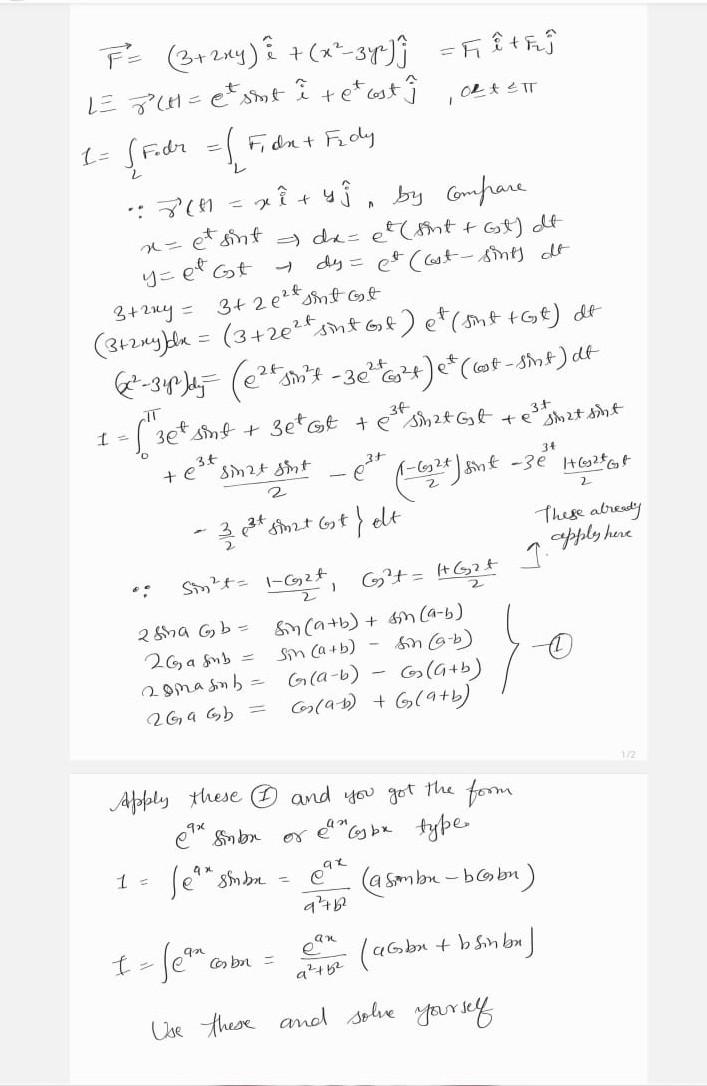 F⃗ = (3+2xy) î + (x²-3y²) ĵ = F₁ î + F₂ ĵ
L≡ r⃗(t) = eᵗ sint î + eᵗ cost ĵ , 0≤t≤π
I = ∫_L F.dr = ∫_L F₁dx + F₂dy
∵ r⃗(t) = x î + y ĵ , by compare
x = eᵗ sint ⇒ dx = eᵗ(sint + cost) dt
y = eᵗ cost → dy = eᵗ (cost - sint) dt
3+2xy = 3+2e²ᵗ sint cost
(3+2xy)dx = (3+2e²ᵗ sint cost) eᵗ (sint + cost) dt
(x²-3y²)dy = (e²ᵗ sin²t - 3e²ᵗ cos²t) eᵗ (cost - sint) dt
I = ∫₀^π 3eᵗ sint + 3eᵗ cost + e³ᵗ sin2t cost + e³ᵗ sin2t sint
+ e³ᵗ (sin2t sint)/2 - e³ᵗ ((1-cos2t)/2) sint - 3e³ᵗ (1+cos2t)/2 cost
- 3/2 e³ᵗ sin2t cost } dt
These already
apply here
∵ sin²t = (1-cos2t)/2 , cos²t = (1+cos2t)/2
2 sina cosb = sin(a+b) + sin(a-b)
2 cosa sinb = sin(a+b) - sin(a-b)
2 sina sinb = cos(a-b) - cos(a+b)
2 cosa cosb = cos(a-b) + cos(a+b)
—①
1/2
Apply these ① and you got the form
eᵃˣ sinbx or eᵃˣ cosbx type.
I = ∫eᵃˣ sinbx = eᵃˣ/(a²+b²) (a sinbx - b cosbx)
I = ∫eᵃˣ cosbx = eᵃˣ/(a²+b²) (a cosbx + b sinbx)
Use these and solve yourself